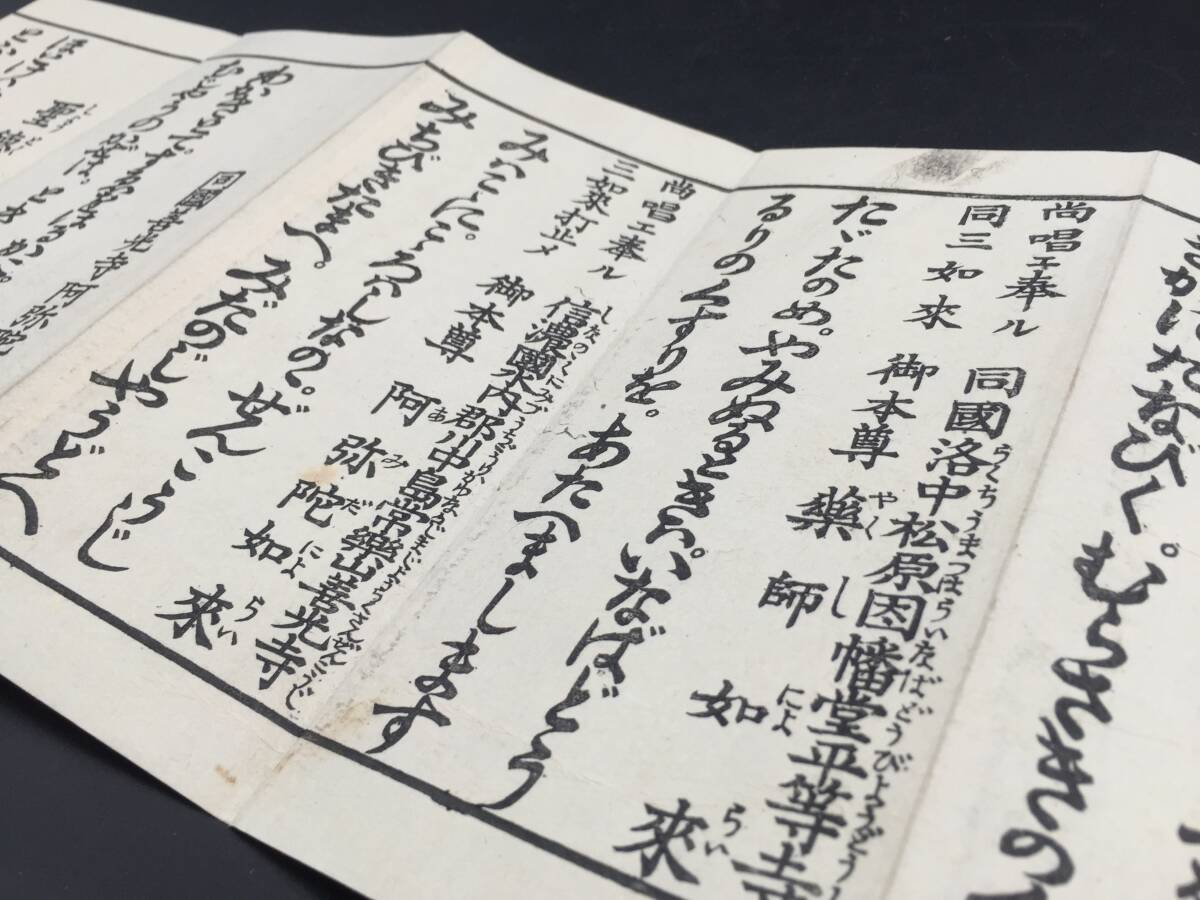 かにたなびく。むらさきの
尚唱エ奉ル 同國洛中松原因幡堂平等寺
同三如來 御本尊 藥師如來
たゞたのめ。やみぬるときハ。いなばどう
るりのくすりを。あたへまします
尚唱エ奉ル 信濃國水内郡川中島常樂山善光寺
三如來打止メ 御本尊 阿弥陀如來
みハこゝに。こゝろハしなの。ぜんこうじ
みちびきたまへ。みだのじやうどへ
同國善光寺 阿弥陀
むじやうのかぜは。